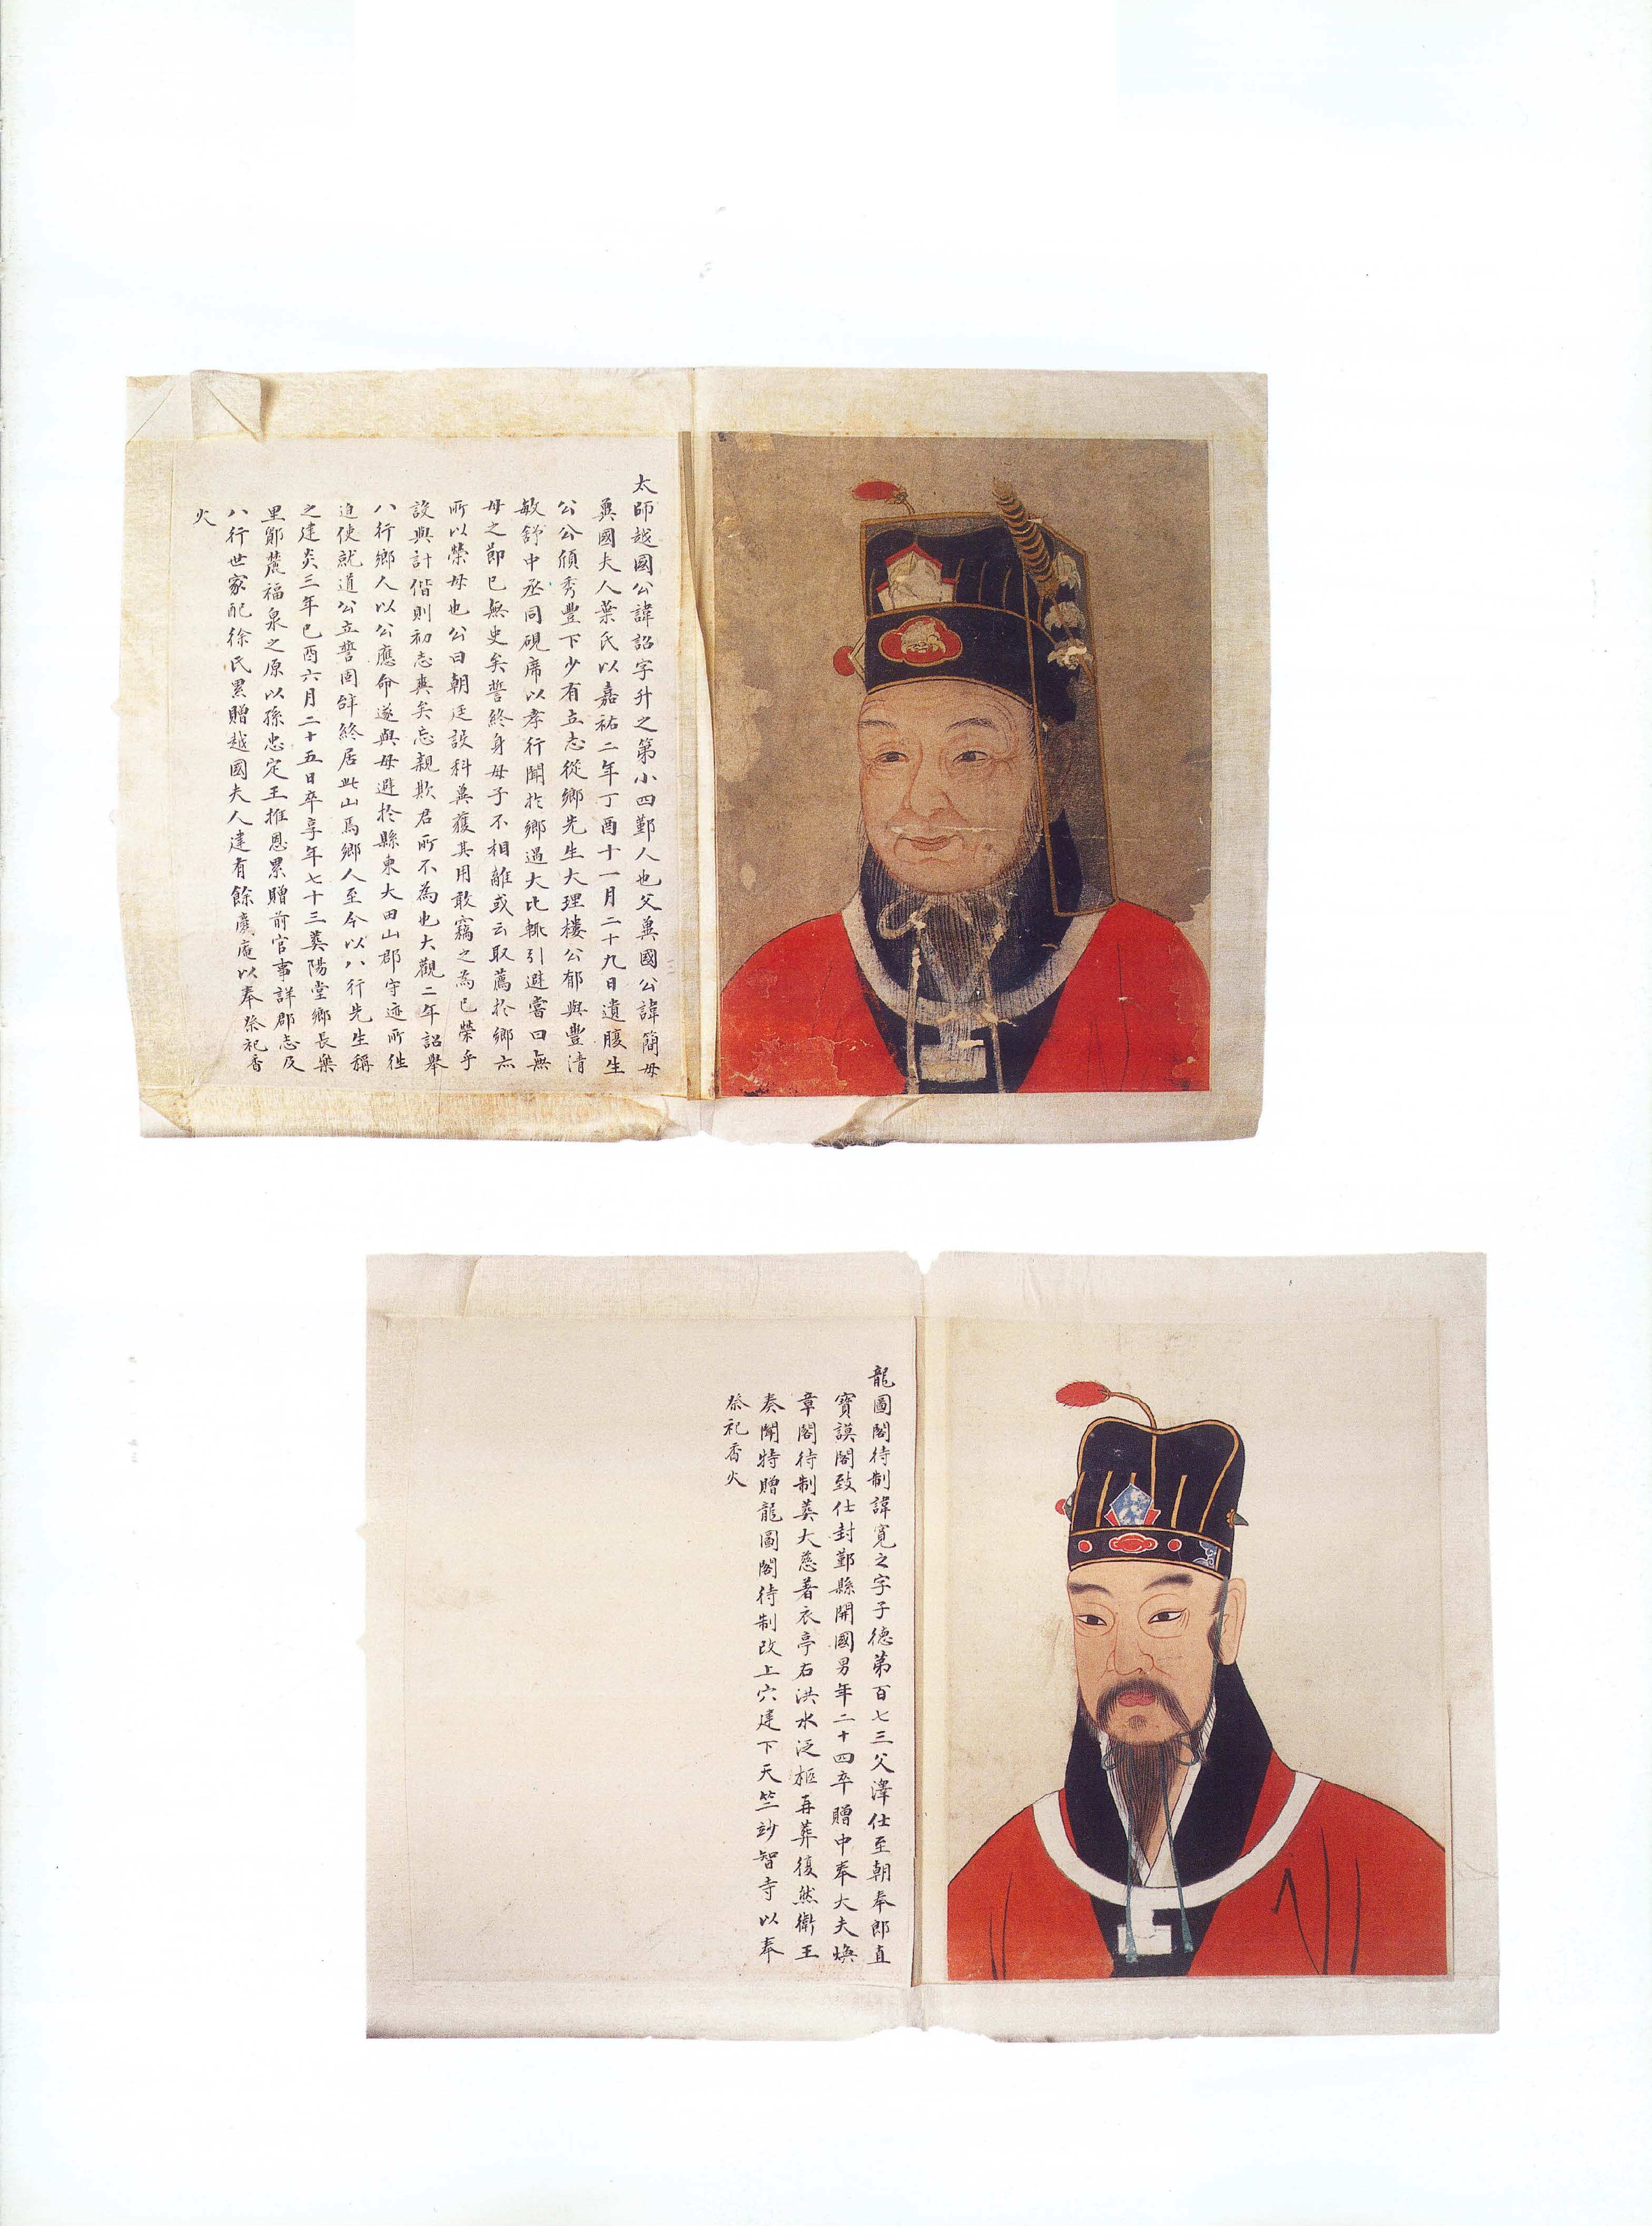 太師越國公諱詔字升之第小四鄞人也父冀國公諱簡母
冀國夫人葉氏以嘉祐二年丁酉十一月二十九日遺腹生
公公頎秀豐下少有立志從鄉先生大理樓公郁與豐清
敏舒中丞同硯席以孝行聞於鄉遇大比輒引避嘗曰無
母之節已無史矣誓終身母子不相離或云取薦於鄉亦
所以榮母也公曰朝廷設科冀獲其用敢竊之為己榮乎
設與計偕則初志爽矣忘親欺君所不為也大觀二年詔舉
八行鄉人以公應命遂與母避於縣東大田山郡守迹所徃
迫使就道公立誓固辭終居此山焉鄉人至今以八行先生稱
之建炎三年己酉六月二十五日卒享年七十三葬陽堂鄉長樂
里鄮麓福泉之原以孫忠定王推恩累贈前官事詳郡志及
八行世家配徐氏累贈越國夫人建有餘慶庵以奉祭祀香
火
龍圖閣待制諱寬之字子德第百七三父澤仕至朝奉郎直
寶謨閣致仕封鄞縣開國男年二十四卒贈中奉大夫煥
章閣待制葬大慈著衣亭右洪水泛柩再葬復然衛王
奏聞特贈龍圖閣待制改上穴建下天竺妙智寺以奉
祭祀香火